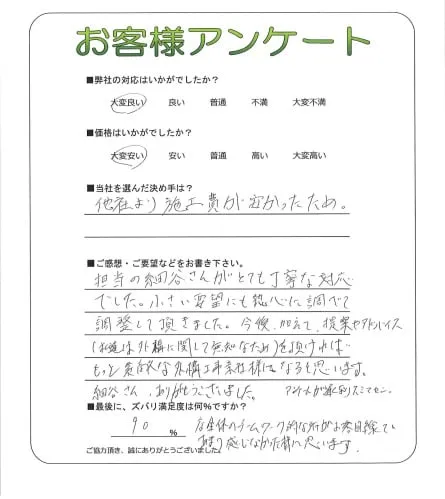 お客様アンケート
■弊社の対応はいかがでしたか?
大変良い 良い 普通 不満 大変不満
■価格はいかがでしたか?
大変安い 安い 普通 高い 大変高い
■当社を選んだ決め手は?
他社より施工費が安かったため。
■ご感想・ご要望などをお書き下さい。
担当の細谷さんがとても丁寧な対応
でした。小さい要望にも熱心に調べて
調整して頂きました。今後、加えて、提案やアドバイス
(お客は外構に関して無知なため)を頂ければ
もっと素敵な外構工事会社様になると思います。
細谷さん、ありがとうございました。 アンケートが遅くなりスミマセン。
■最後に、ズバリ満足度は何%ですか?
90 % 全体のチームワーク的な所がお客目線で
あまり感じなかった様に思います。
ご協力頂き、誠にありがとうございました。